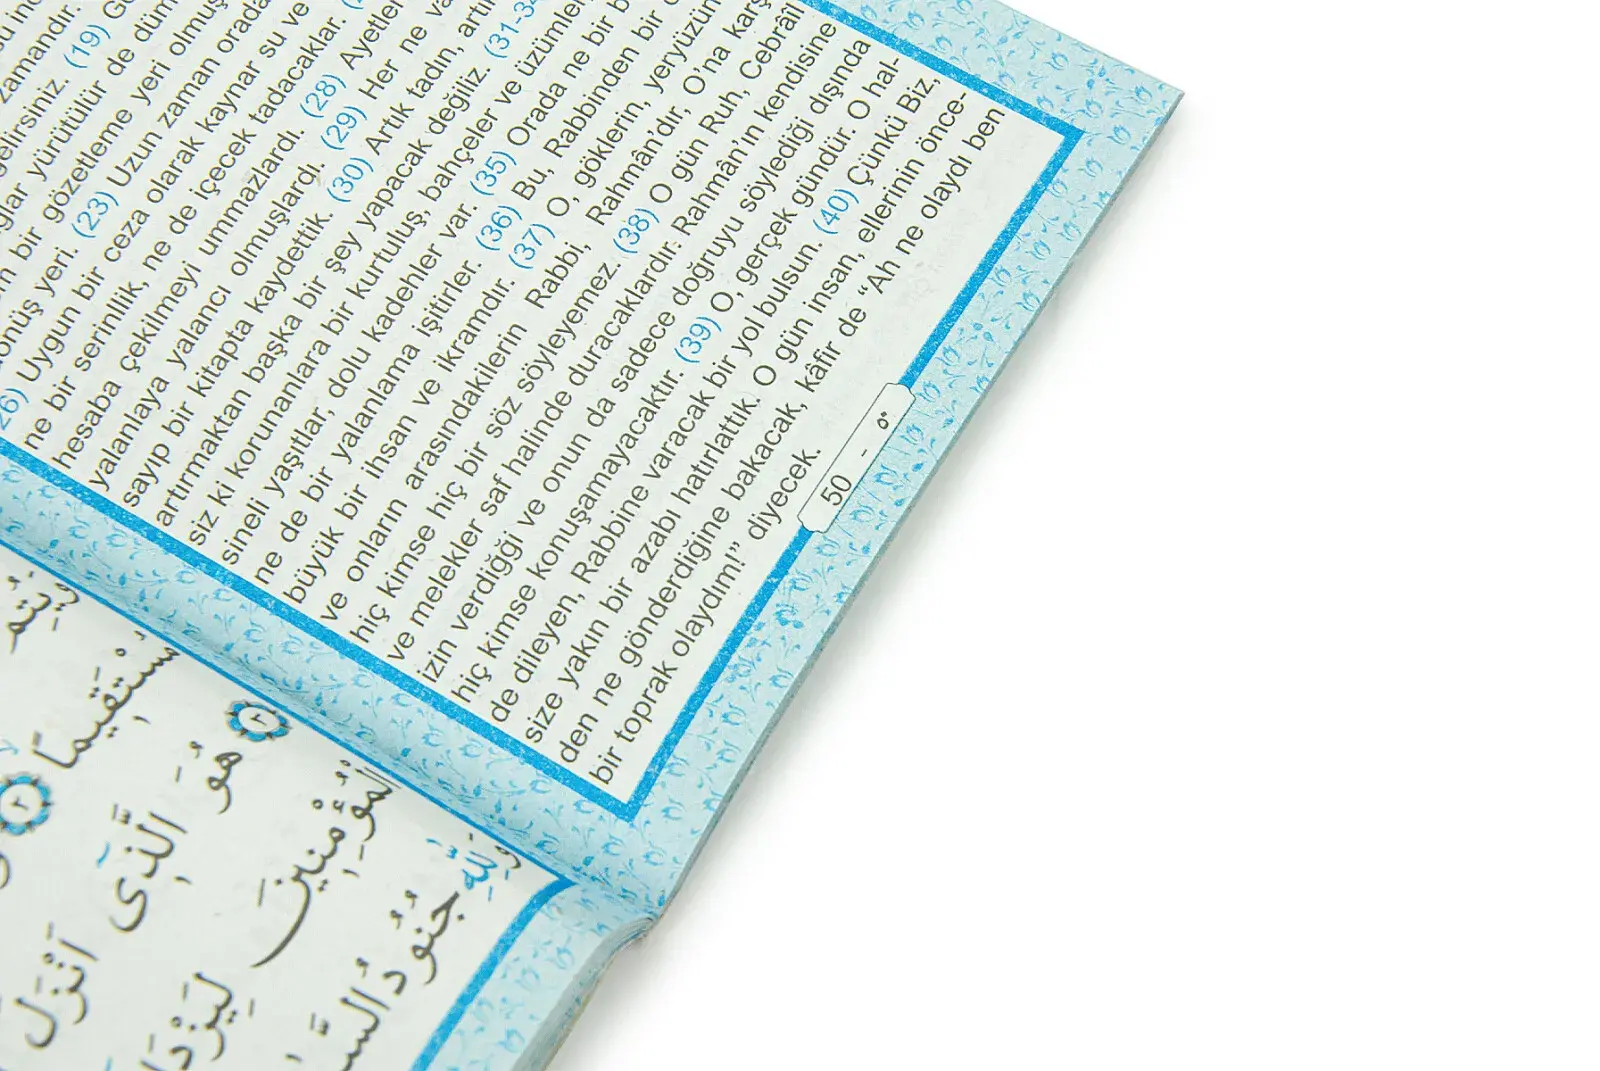 zamandır. (19)
yürütülür de
bir gözetleme yeri
yeri. (23) Uzun zaman orada
Uygun bir ceza olarak kaynar su ve
ne bir serinlik, ne de içecek tadacaklar.
hesaba çekilmeyi ummazlardı. (28)
yalanlaya yalancı olmuşlardı. (29) Her ne
sayıp bir kitapta kaydettik. (30) Artık tadın,
artırmaktan başka bir şey yapacak değiliz.
siz ki korunanlara bir kurtuluş, bahçeler ve
sineli yaştlar, dolu kadehler var. (35) Orada ne bir
ne de bir yalanlama işitirler. (36) Bu, Rabbinden bir
büyük bir ihsan ve ikramdır. (37) O, göklerin,
ve onların arasındakilerin Rabbi, Rahmân’dır, O’na
hiç kimse hiç bir söz söyleyemez. (38) O gün Ruh, Cebrâil
ve melekler saf halinde duracaklardır. Rahmân’ın kendisine
izin verdiğği ve onun da sadece doğruyu söylediği dışında
hiç kimse konuşamayacaktır. (39) O, gerçek gündür. O hal-
de dileyen, Rabbine varacak bir yol bulsun. (40) Çünkü Biz,
size yakın bir azabı hatırlattık. O gün insan, ellerinin önce-
den ne gönderdiğine bakacak, kâfir de “Ah ne olaydı ben
bir toprak olaydım!” diyecek.
50 - ٥٠
مُسْتَقِيمًا ٢
٣ هُوَ الَّذِٓى اَنْزَلَ
الْمُؤْمِنِينَ لِيَزْدَا
وَلِلّٰهِ جُنُودُ